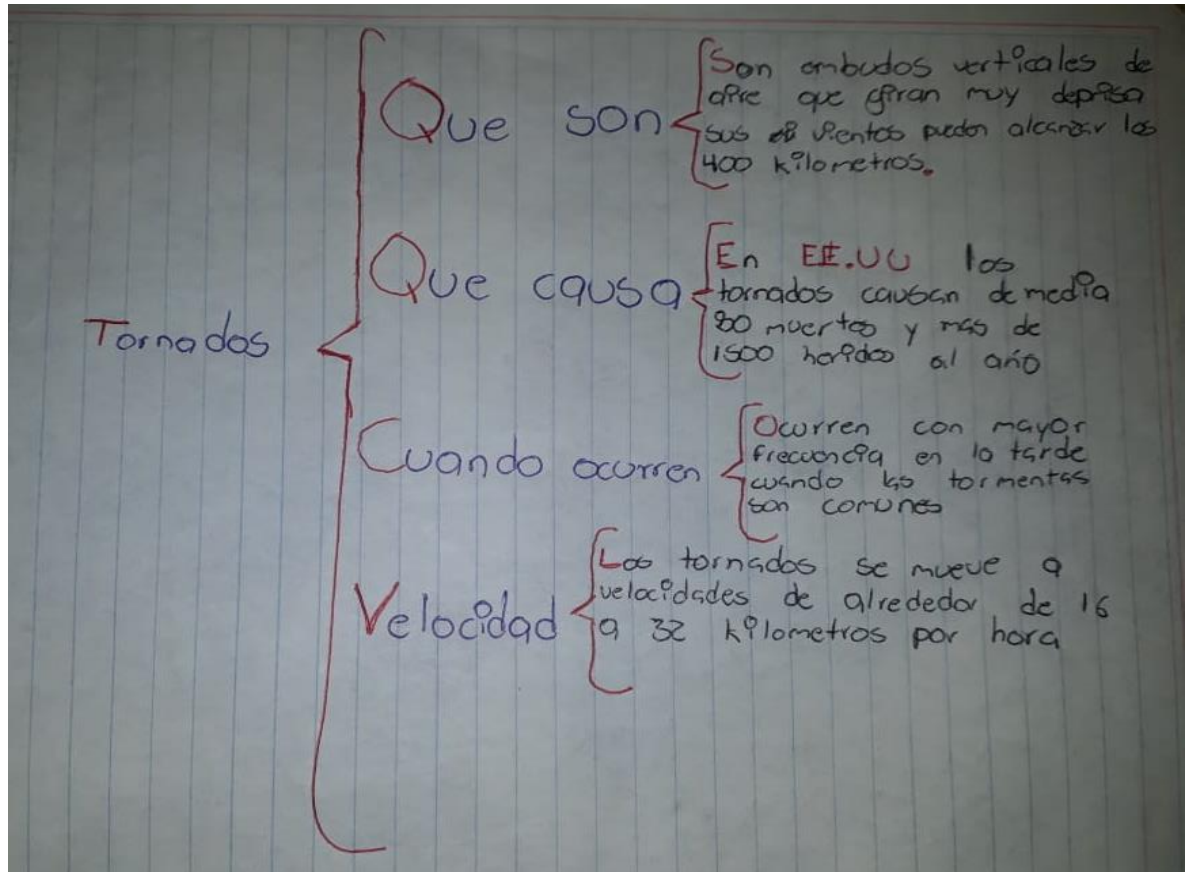 Tornados
Que son
Son embudos verticales de
aire que giran muy deprisa
sus vientos pueden alcanzar los
400 kilometros.
Que causa
En EE.UU los
tornados causan de media
80 muertos y mas de
1500 heridos al año
Cuando ocurren
Ocurren con mayor
frecuencia en la tarde
cuando las tormentas
son comunes
Velocidad
Los tornados se mueve a
velocidades de alrededor de 16
a 32 kilometros por hora